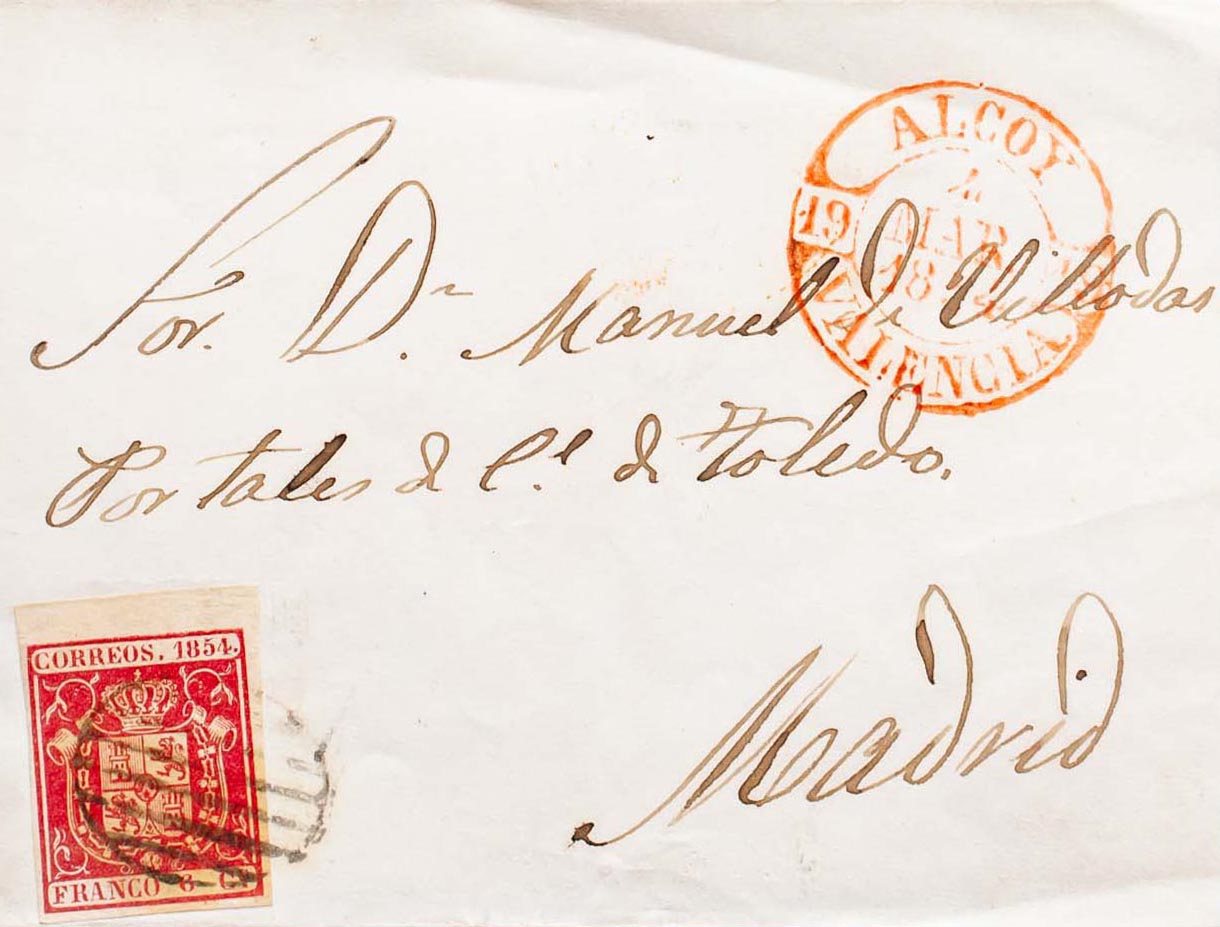 ALCOY
4
19 MAR
18
VALENCIA
Sor. Dn. Manuel de Villodas
Portales de C.l de Toledo.
Madrid
CORREOS. 1854.
FRANCO 6 Cs